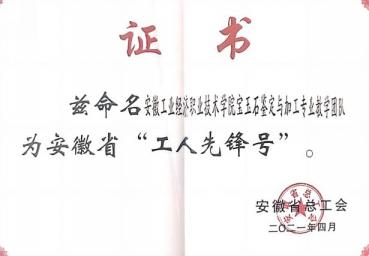 证书
兹命名安徽工业经济职业技术学院宝玉石鉴定与加工专业教学团队
为安徽省“工人先锋号”。
安徽省总工会
二〇二一年四月